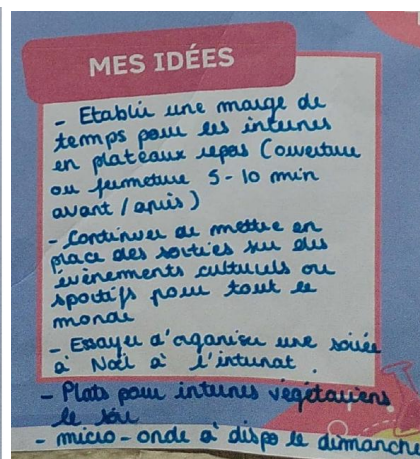 MES IDÉES
- Etablir une marge de
temps pour les internes
en plateaux repas (ouverture
ou fermeture 5-10 min
avant / après)
- Continuer de mettre en
place des sorties sur des
évènements culturels ou
sportifs pour tout le
monde
- Essayer d'organiser une soirée
à Noël à l'internat.
- Plats pour internes végétariens
le soir
- micro-onde à dispo le dimanche